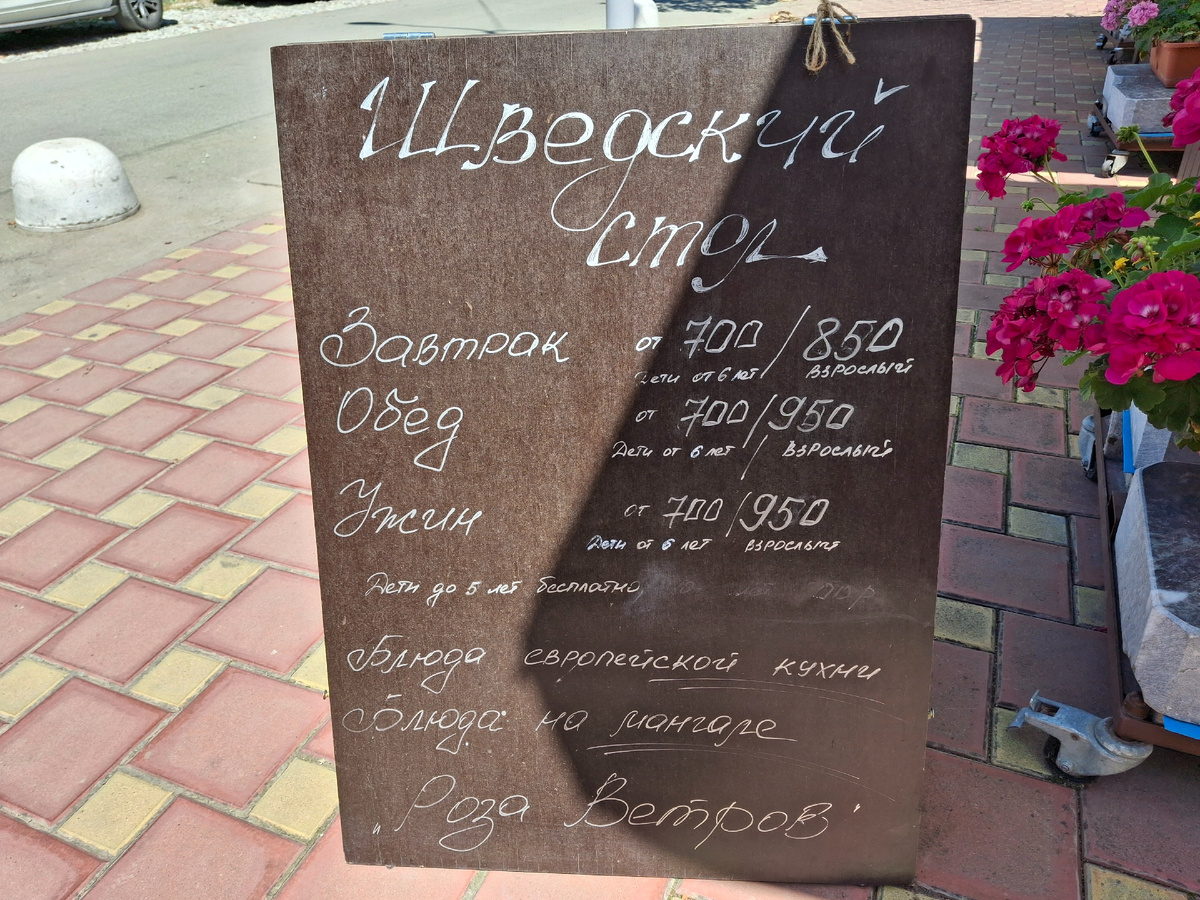 Шведский
стол
Завтрак от 700 / 850
Дети от 6 лет / взрослый
Обед от 700 / 950
Дети от 6 лет / взрослый
Ужин от 700 / 950
Дети от 6 лет взрослый
Дети до 5 лет бесплатно
Блюда европейской кухни
Блюда на мангале
„Роза Ветров"